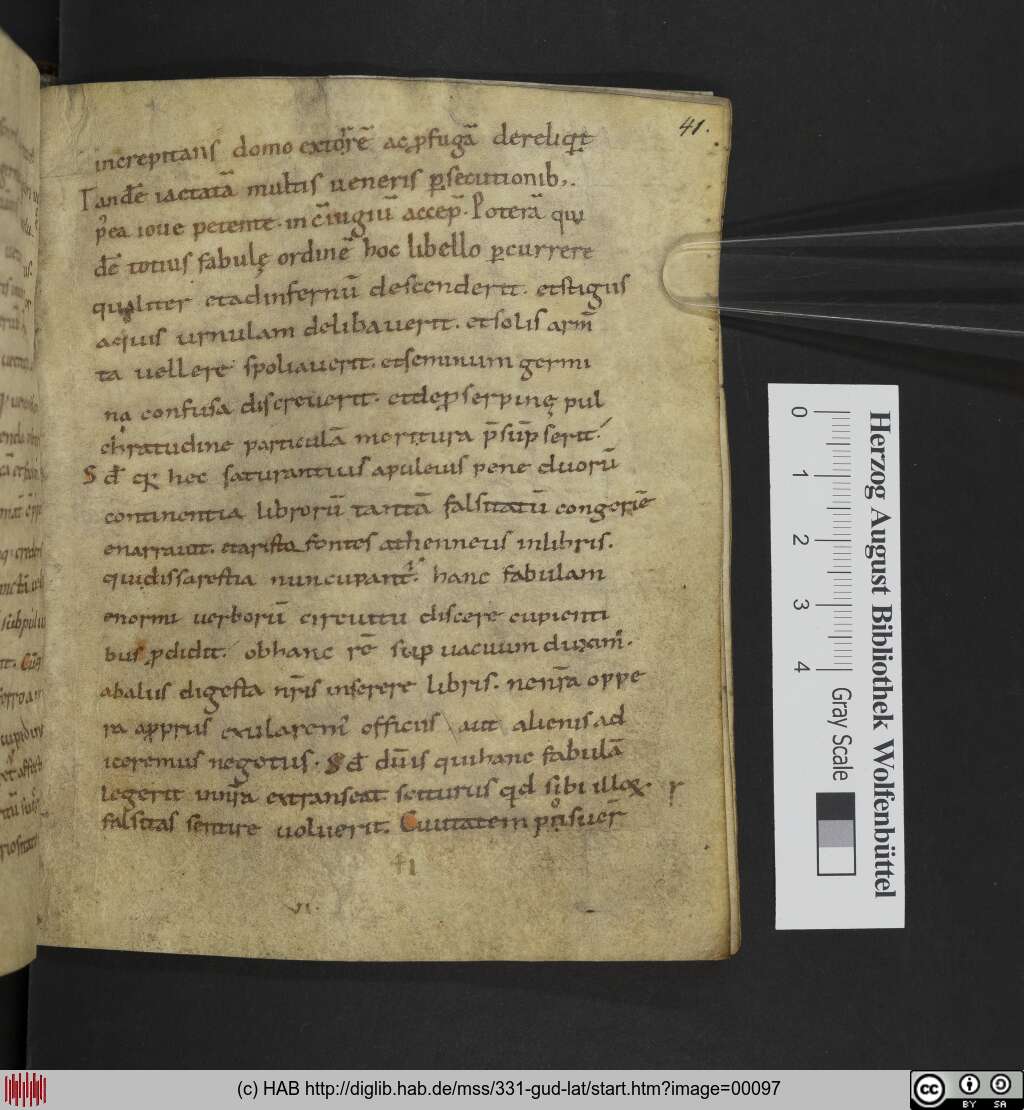 41.
increpitans domo extorrē ac ꝓfugā dereliqͥt
Tandē iactatā multis ueneris ꝑsecutionib;.
pꝰea ioue petente. in c̄iugiū accep̄. Poterā qui
dē totius fabulę ordinē hoc libello ꝑcurrere
qualiter etadinfernū descenderit. etstigiis
aquis urnulam delibauerit. etsolis arm̄
ta uellere spoliauerit. etseminum germi
na confusa discreuerit. etdeꝓserpinę pul
chͥratudine particulā moritura p̄sūpserit.
Sd̄ qꝛ hec saturantius apuleius pene duorū
continentia librorū tantā falsitatū congeriē
enarrauit. etaristo fontes athenneus inlibris.
quidissarestia nuncupant̄. hanc fabulam
enormi uerborū circuitu discere cupienti
bus ꝓdidit. obhanc rē suꝑuacuum duxim̄.
abalus digesta nr̄is inserere libris. nenr̄a oppe
ra aꝓprus exularem̄ officus aut alienis ad
iceremus negotus. Sd̄ dūis quihanc fabulā
legerit innr̄a extranseat sciturus qd̄ sibi illoꝝ
falsitas sentire uoluerit. Ciuitatem posuer̄
r
VI.
Herzog August Bibliothek Wolfenbüttel
0 1 2 3 4
Gray Scale
(c) HAB http://diglib.hab.de/mss/331-gud-lat/start.htm?image=00097
cc
BY SA